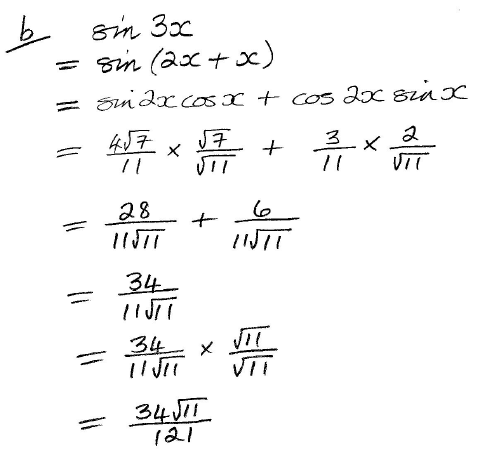 b sin 3x
= sin (2x + x)
= sin 2x cos x + cos 2x sin x
= 4√7/11 × √7/√11 + 3/11 × 2/√11
= 28/11√11 + 6/11√11
= 34/11√11
= 34/11√11 × √11/√11
= 34√11/121